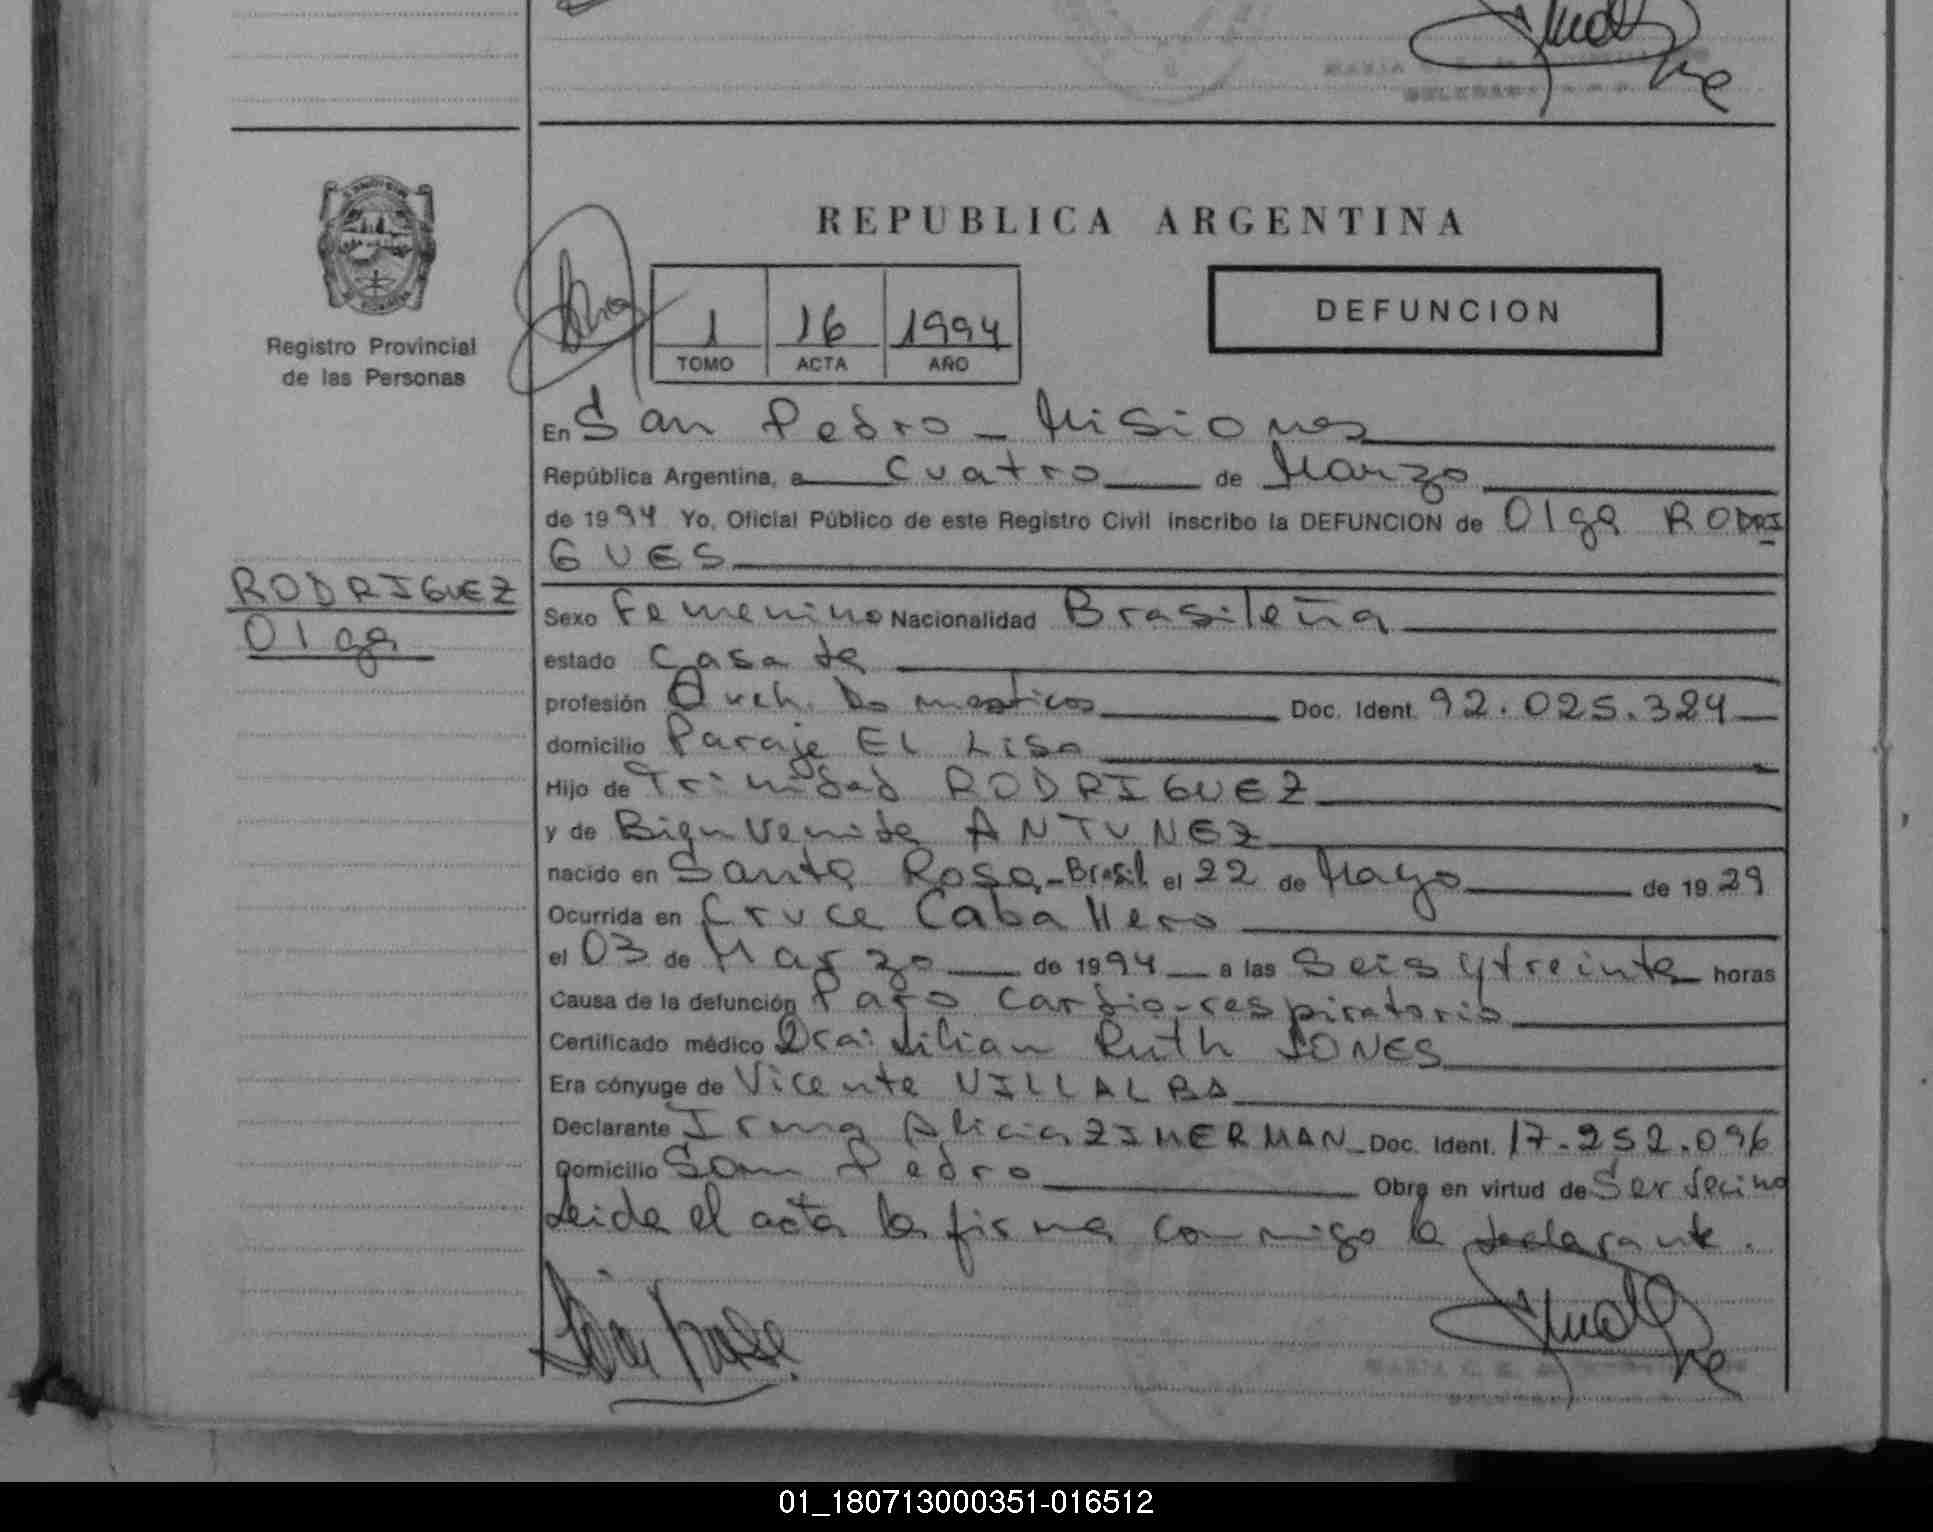 REPUBLICA ARGENTINA
1 16 1994
TOMO ACTA AÑO
DEFUNCION
Registro Provincial
de las Personas
En San Pedro - Misiones
República Argentina, a cuatro de Marzo
de 1994 Yo, Oficial Público de este Registro Civil inscribo la DEFUNCION de Olga RODRI
GUES
RODRIGUEZ
Olga
Sexo Femenino Nacionalidad Brasileña
estado Casada
profesión Queh. Domesticos Doc. Ident. 92.025.324
domicilio Paraje EL Liso
Hijo de Trinidad RODRIGUEZ
y de Bienvenida ANTUNEZ
nacido en Santa Rosa-Brasil el 22 de Mayo de 1929
Ocurrida en Cruce Caballero
el 03 de Marzo de 1994 a las Seis y treinta horas
Causa de la defunción Paro cardio-respiratorio
Certificado médico Dra: Lilian Ruth JONES
Era cónyuge de Vicente VILLALBA
Declarante Irma Alicia ZIMERMAN Doc. Ident. 17.252.096
Domicilio San Pedro Obra en virtud de Ser vecino
Leida el acta la firma conmigo la declarante.
01_180713000351-016512